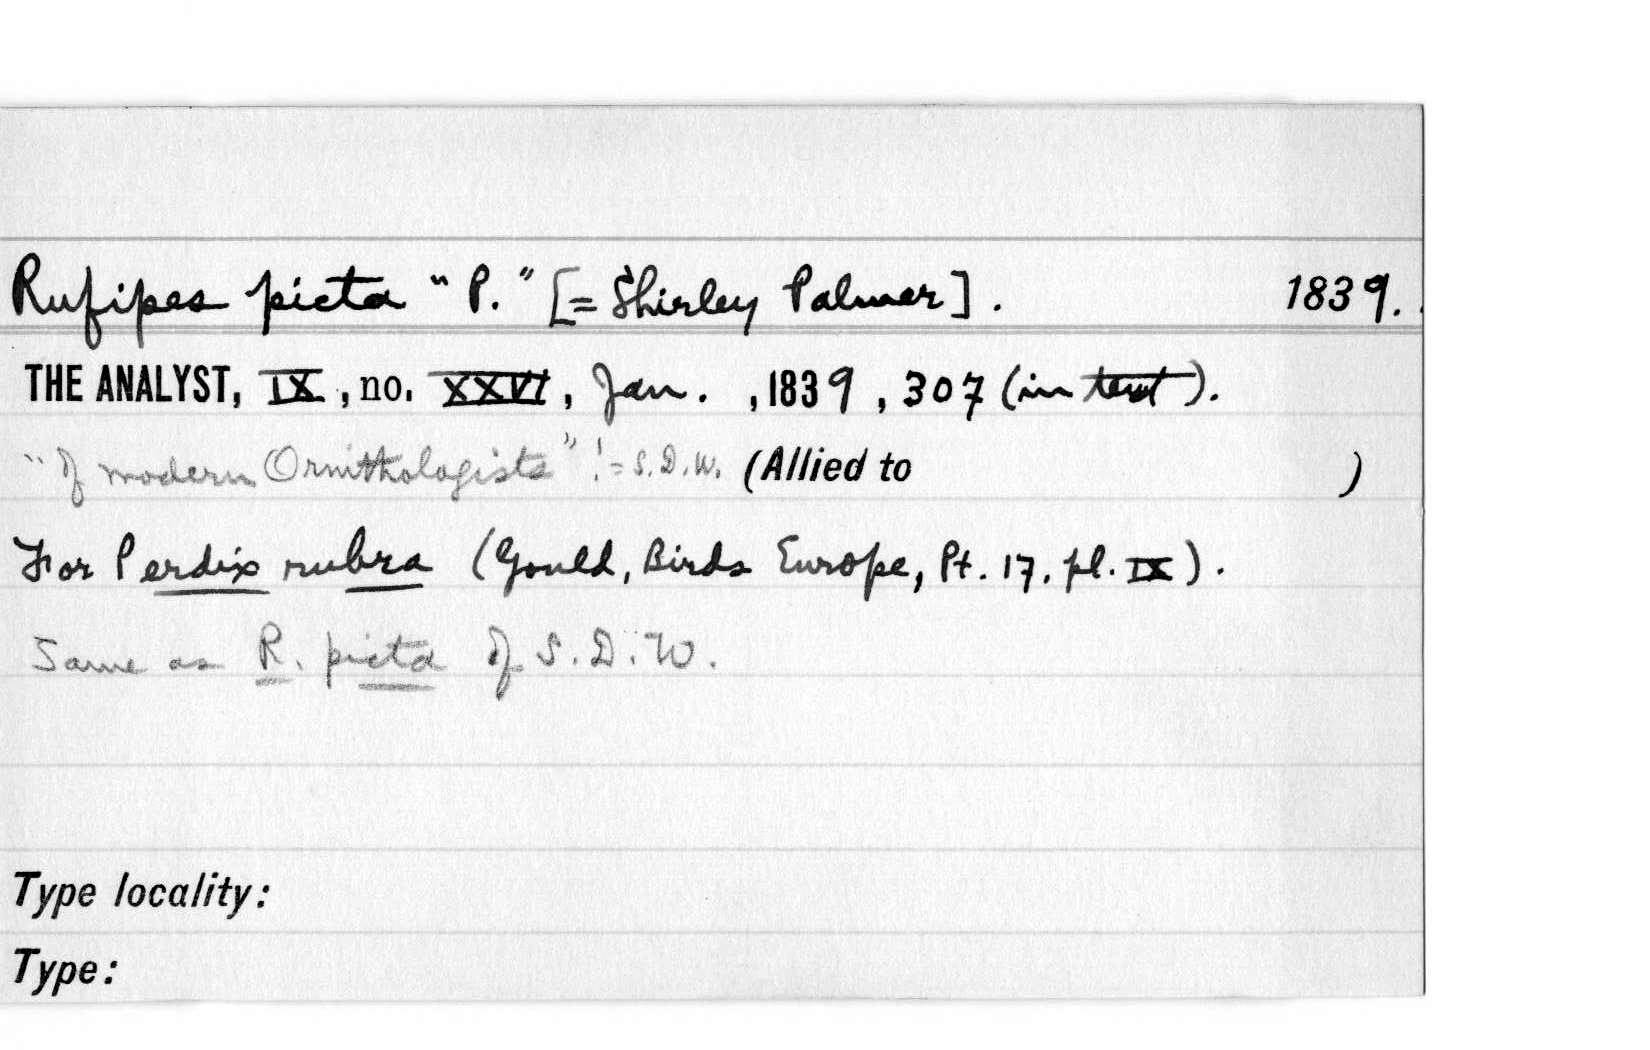 Rufipes picta "P." [= Shirley Palmer]. 1839.
THE ANALYST, IX, no. XXVI, Jan. , 1839, 307 (in text).
"of modern Ornithologists"! = S.D.W. (Allied to )
For Perdix rubra (Gould, Birds Europe, Pt. 17, pl. IX).
Same as R. picta of S.D.W.
Type locality:
Type: